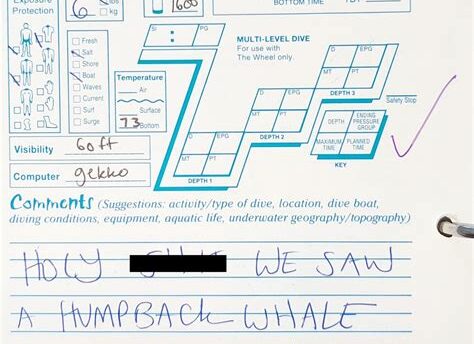 Exposure
Protection
6
lbs
kg
1600
BOTTOM TIME
Fresh
Salt
Shore
Boat
Waves
Current
Surf
Surge
Temperature
Air
Surface
73 Bottom
SI : PG
MULTI-LEVEL DIVE
For use with
The Wheel only.
D EPG
MT PT
DEPTH 3
D EPG
MT PT
DEPTH 2
D EPG
MT PT
DEPTH 1
Safety Stop
DEPTH ENDING PRESSURE GROUP
MAXIMUM TIME PLANNED TIME
KEY
Visibility 60 ft
Computer gekko
Comments (Suggestions: activity/type of dive, location, dive boat,
diving conditions, equipment, aquatic life, underwater geography/topography)
HOLY WE SAW
A HUMPBACK WHALE